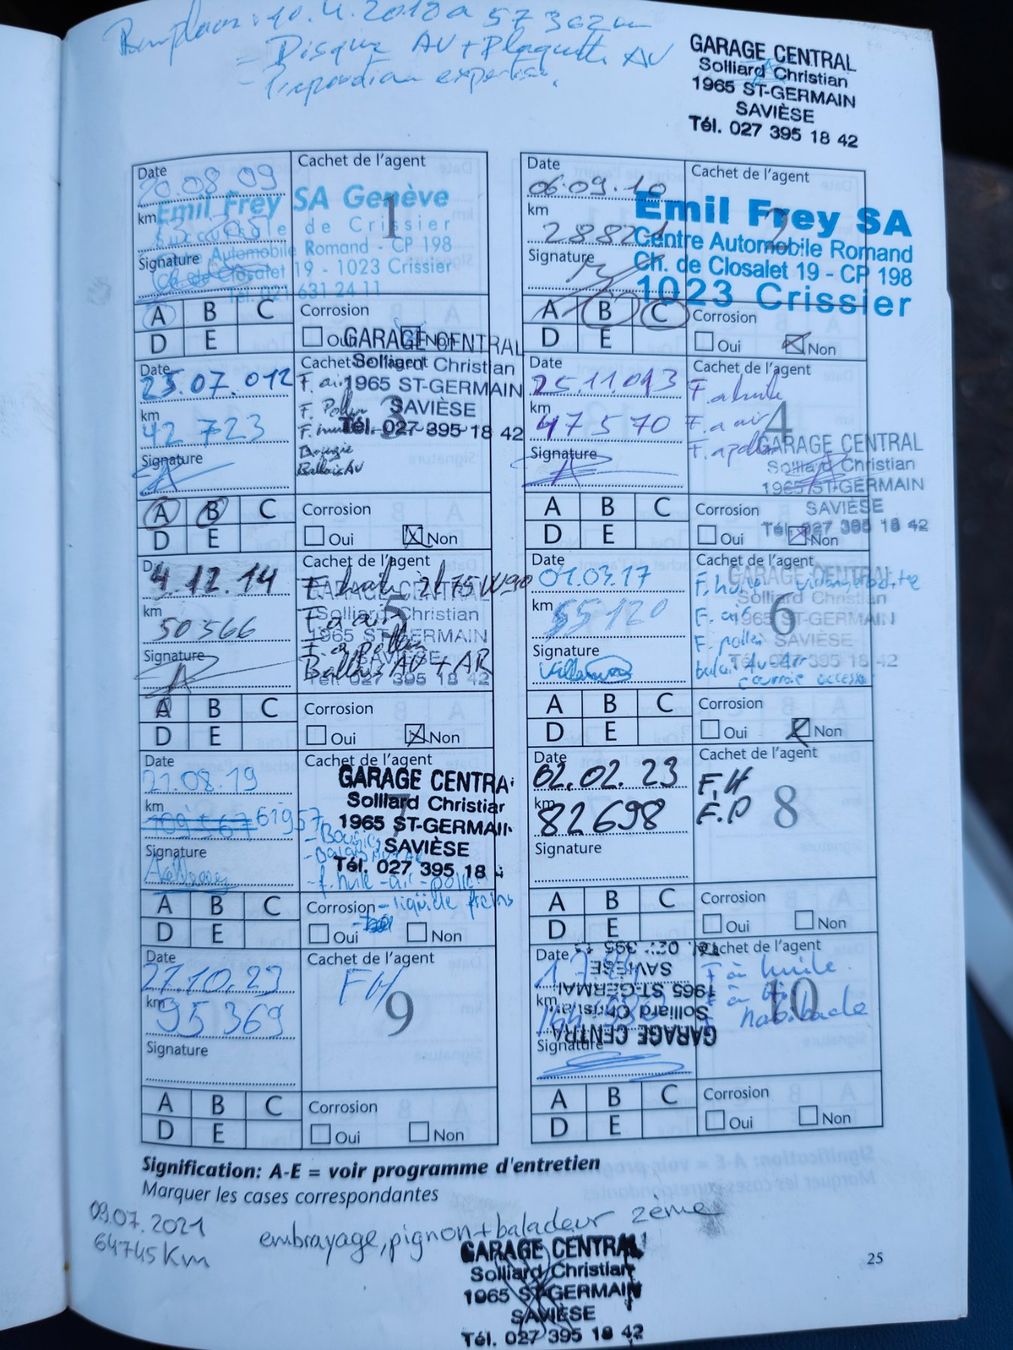 10.4.2018 a 57302 km
= Disque AV + Plaquette AV
- expertise.
GARAGE CENTRAL
Solliard Christian
1965 ST-GERMAIN
SAVIÈSE
Tél. 027 395 18 42
Date
20.08.09
km
Signature
Cachet de l'agent
1
Emil Frey SA Genève
de Crissier
Automobile Romand - CP 198
Ch. de Closalet 19 - 1023 Crissier
Tél. 021 631 24 11
A B C
D E
Corrosion
Oui Non
Date
06.09.10
km
Signature
Cachet de l'agent
2
Emil Frey SA
Centre Automobile Romand
Ch. de Closalet 19 - CP 198
1023 Crissier
A B C
D E
Corrosion
Oui Non
Date
23.07.012
km
42 723
Signature
Cachet de l'agent
3
F. air
F. Pollen
F. huile
Bougie
Balais AV
GARAGE CENTRAL
Solliard Christian
1965 ST-GERMAIN
SAVIÈSE
Tél. 027 395 18 42
A B C
D E
Corrosion
Oui Non
Date
25.11.013
km
47570
Signature
Cachet de l'agent
4
F. a huile
F. a air
F. a pollen
GARAGE CENTRAL
Solliard Christian
1965 ST-GERMAIN
SAVIÈSE
Tél. 027 395 18 42
A B C
D E
Corrosion
Oui Non
4.12.14
km
50566
Signature
Cachet de l'agent
5
F. huile 75W90
F a air
F a pollen
Balais AV + AR
GARAGE CENTRAL
Solliard Christian
1965 ST-GERMAIN
SAVIÈSE
Tél. 027 395 18 42
A B C
D E
Corrosion
Oui Non
Date
km
55120
Signature
Cachet de l'agent
6
F. huile
F. air
F. pollen
balais AV-Arr
courroie
GARAGE CENTRAL
Solliard Christian
1965 ST-GERMAIN
SAVIÈSE
Tél. 027 395 18 42
A B C
D E
Corrosion
Oui Non
Date
21.08.19
km
109567 61957
Signature
Cachet de l'agent
7
GARAGE CENTRA
Solliard Christian
1965 ST-GERMAIN
SAVIÈSE
Tél. 027 395 18 4
- Bougies
- Balais
- f. huile - air - pollen
- liquide freins
A B C
D E
Corrosion
Oui Non
Date
02.02.23
km
82698
Signature
Cachet de l'agent
8
F.H
F.P
A B C
D E
Corrosion
Oui Non
Date
27.10.23
km
95369
Signature
Cachet de l'agent
9
FH
A B C
D E
Corrosion
Oui Non
Date
km
Signature
Cachet de l'agent
10
F à huile
F à
habitacle
GARAGE CENTRA
Solliard Christian
1965 ST-GERMAI
SAVIÈSE
Tél. 027 395
A B C
D E
Corrosion
Oui Non
Signification: A-E = voir programme d'entretien
Marquer les cases correspondantes
09.07.2021
64745 Km
embrayage, pignon + baladeur 2ème
GARAGE CENTRAL
Solliard Christian
1965 ST-GERMAIN
SAVIÈSE
Tél. 027 395 18 42
25